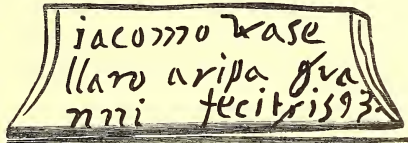 iacomo vase
llaro aripa gra
nni fecit 1593.